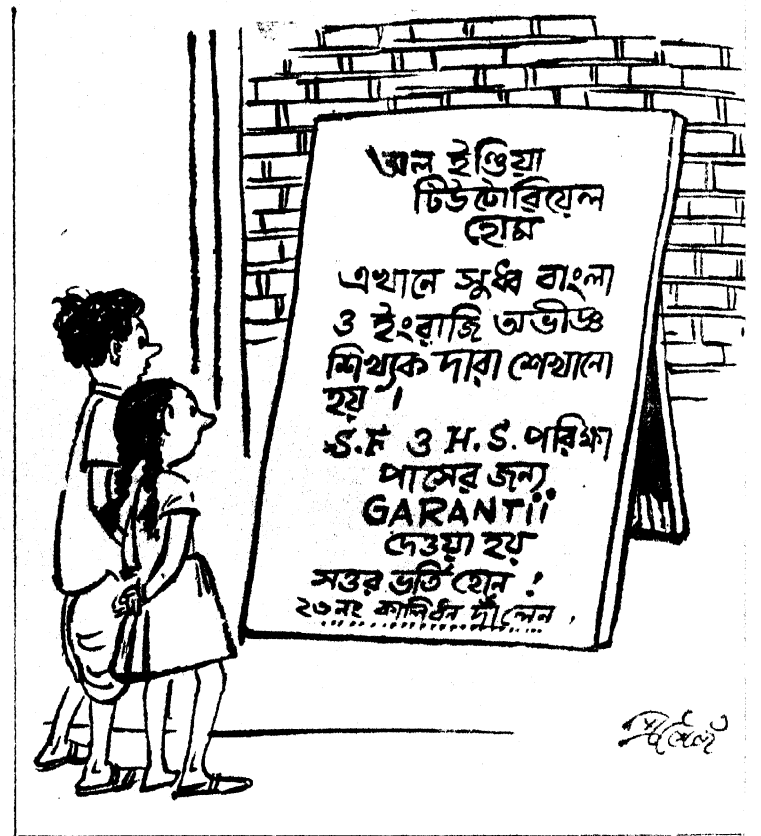 অল ইণ্ডিয়া
টিউটোরিয়েল
হোম
এখানে সুধ্ব বাংলা
ও ইংরাজি অভীজ্ঞ
শিখ্যক দারা শেখানো
হয় ।
S.F ও H.S. পরিক্ষা
পাসের জন্য
GARANTii
দেওয়া হয়
সত্তর ভর্তি হোন !
২৩নং কালিধন লেন